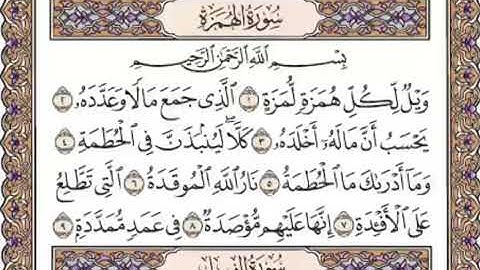 سُورَةُ الهُمَزَةِ
بِسْمِ ٱللَّهِ ٱلرَّحْمَٰنِ ٱلرَّحِيمِ
وَيْلٌ لِّكُلِّ هُمَزَةٍ لُّمَزَةٍ ١ ٱلَّذِى جَمَعَ مَالًا وَعَدَّدَهُۥ ٢
يَحْسَبُ أَنَّ مَالَهُۥٓ أَخْلَدَهُۥ ٣ كَلَّا ۖ لَيُنۢبَذَنَّ فِى ٱلْحُطَمَةِ ٤
وَمَآ أَدْرَىٰكَ مَا ٱلْحُطَمَةُ ٥ نَارُ ٱللَّهِ ٱلْمُوقَدَةُ ٦ ٱلَّتِى تَطَّلِعُ
عَلَى ٱلْأَفْـِٔدَةِ ٧ إِنَّهَا عَلَيْهِم مُّؤْصَدَةٌ ٨ فِى عَمَدٍ مُّمَدَّدَةٍۭ ٩
سُورَةُ الفِيلِ